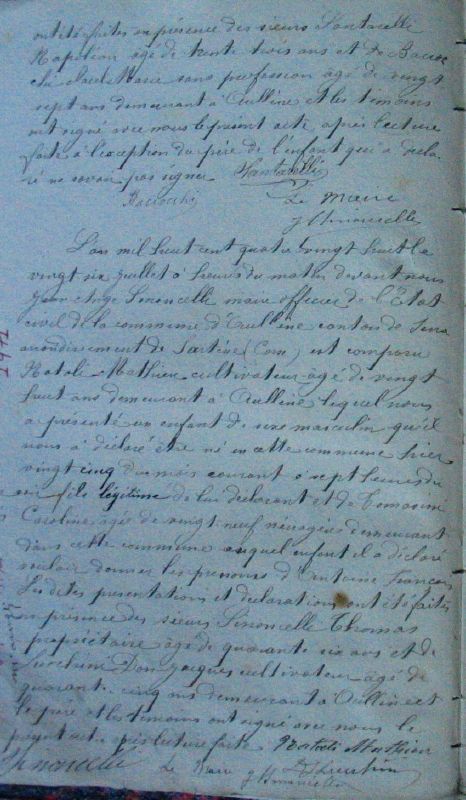 ont été faites en présence des sieurs Santarelli
Napoléon âgé de trente trois ans et de Bacioc
chi sans profession âgé de vingt
sept ans demeurant à Aullène et les témoins
ont signé avec nous le présent acte, après lecture
faite à l'exception du père de l'enfant qui a décla
ré ne savoir pas signer Santarelli
Baciocchi Le Maire
L'an mil huit cent quatre vingt huit le
vingt six juillet à heures du matin devant nous
Jean Ange Simoncelle maire officier de l'État
civil de la commune d'Aullène canton de Serra
arrondissement de Sartène (Corse) est comparu
Natali Mathieu cultivateur âgé de vingt
huit ans demeurant à Aullène lequel nous
a présenté un enfant de sexe masculin qu'il
nous a déclaré être né en cette commune hier
vingt cinq du mois courant à sept heures du
soir fils légitime de lui déclarant et de Tomasini
Caroline âgée de vingt neuf ménagère demeurant
dans cette commune auquel enfant il a déclaré
vouloir donner les prénoms d'Antoine François
Les dites présentation et déclaration ont été faites
en présence des sieurs Simoncelle Thomas
propriétaire âgé de quarante six ans et de
Don Jacques cultivateur âgé de
quarante cinq ans demeurant à Aullène et
le père et les témoins ont signé avec nous le
présent acte après lecture faite Natali Mathieu
Simoncelli Le Maire